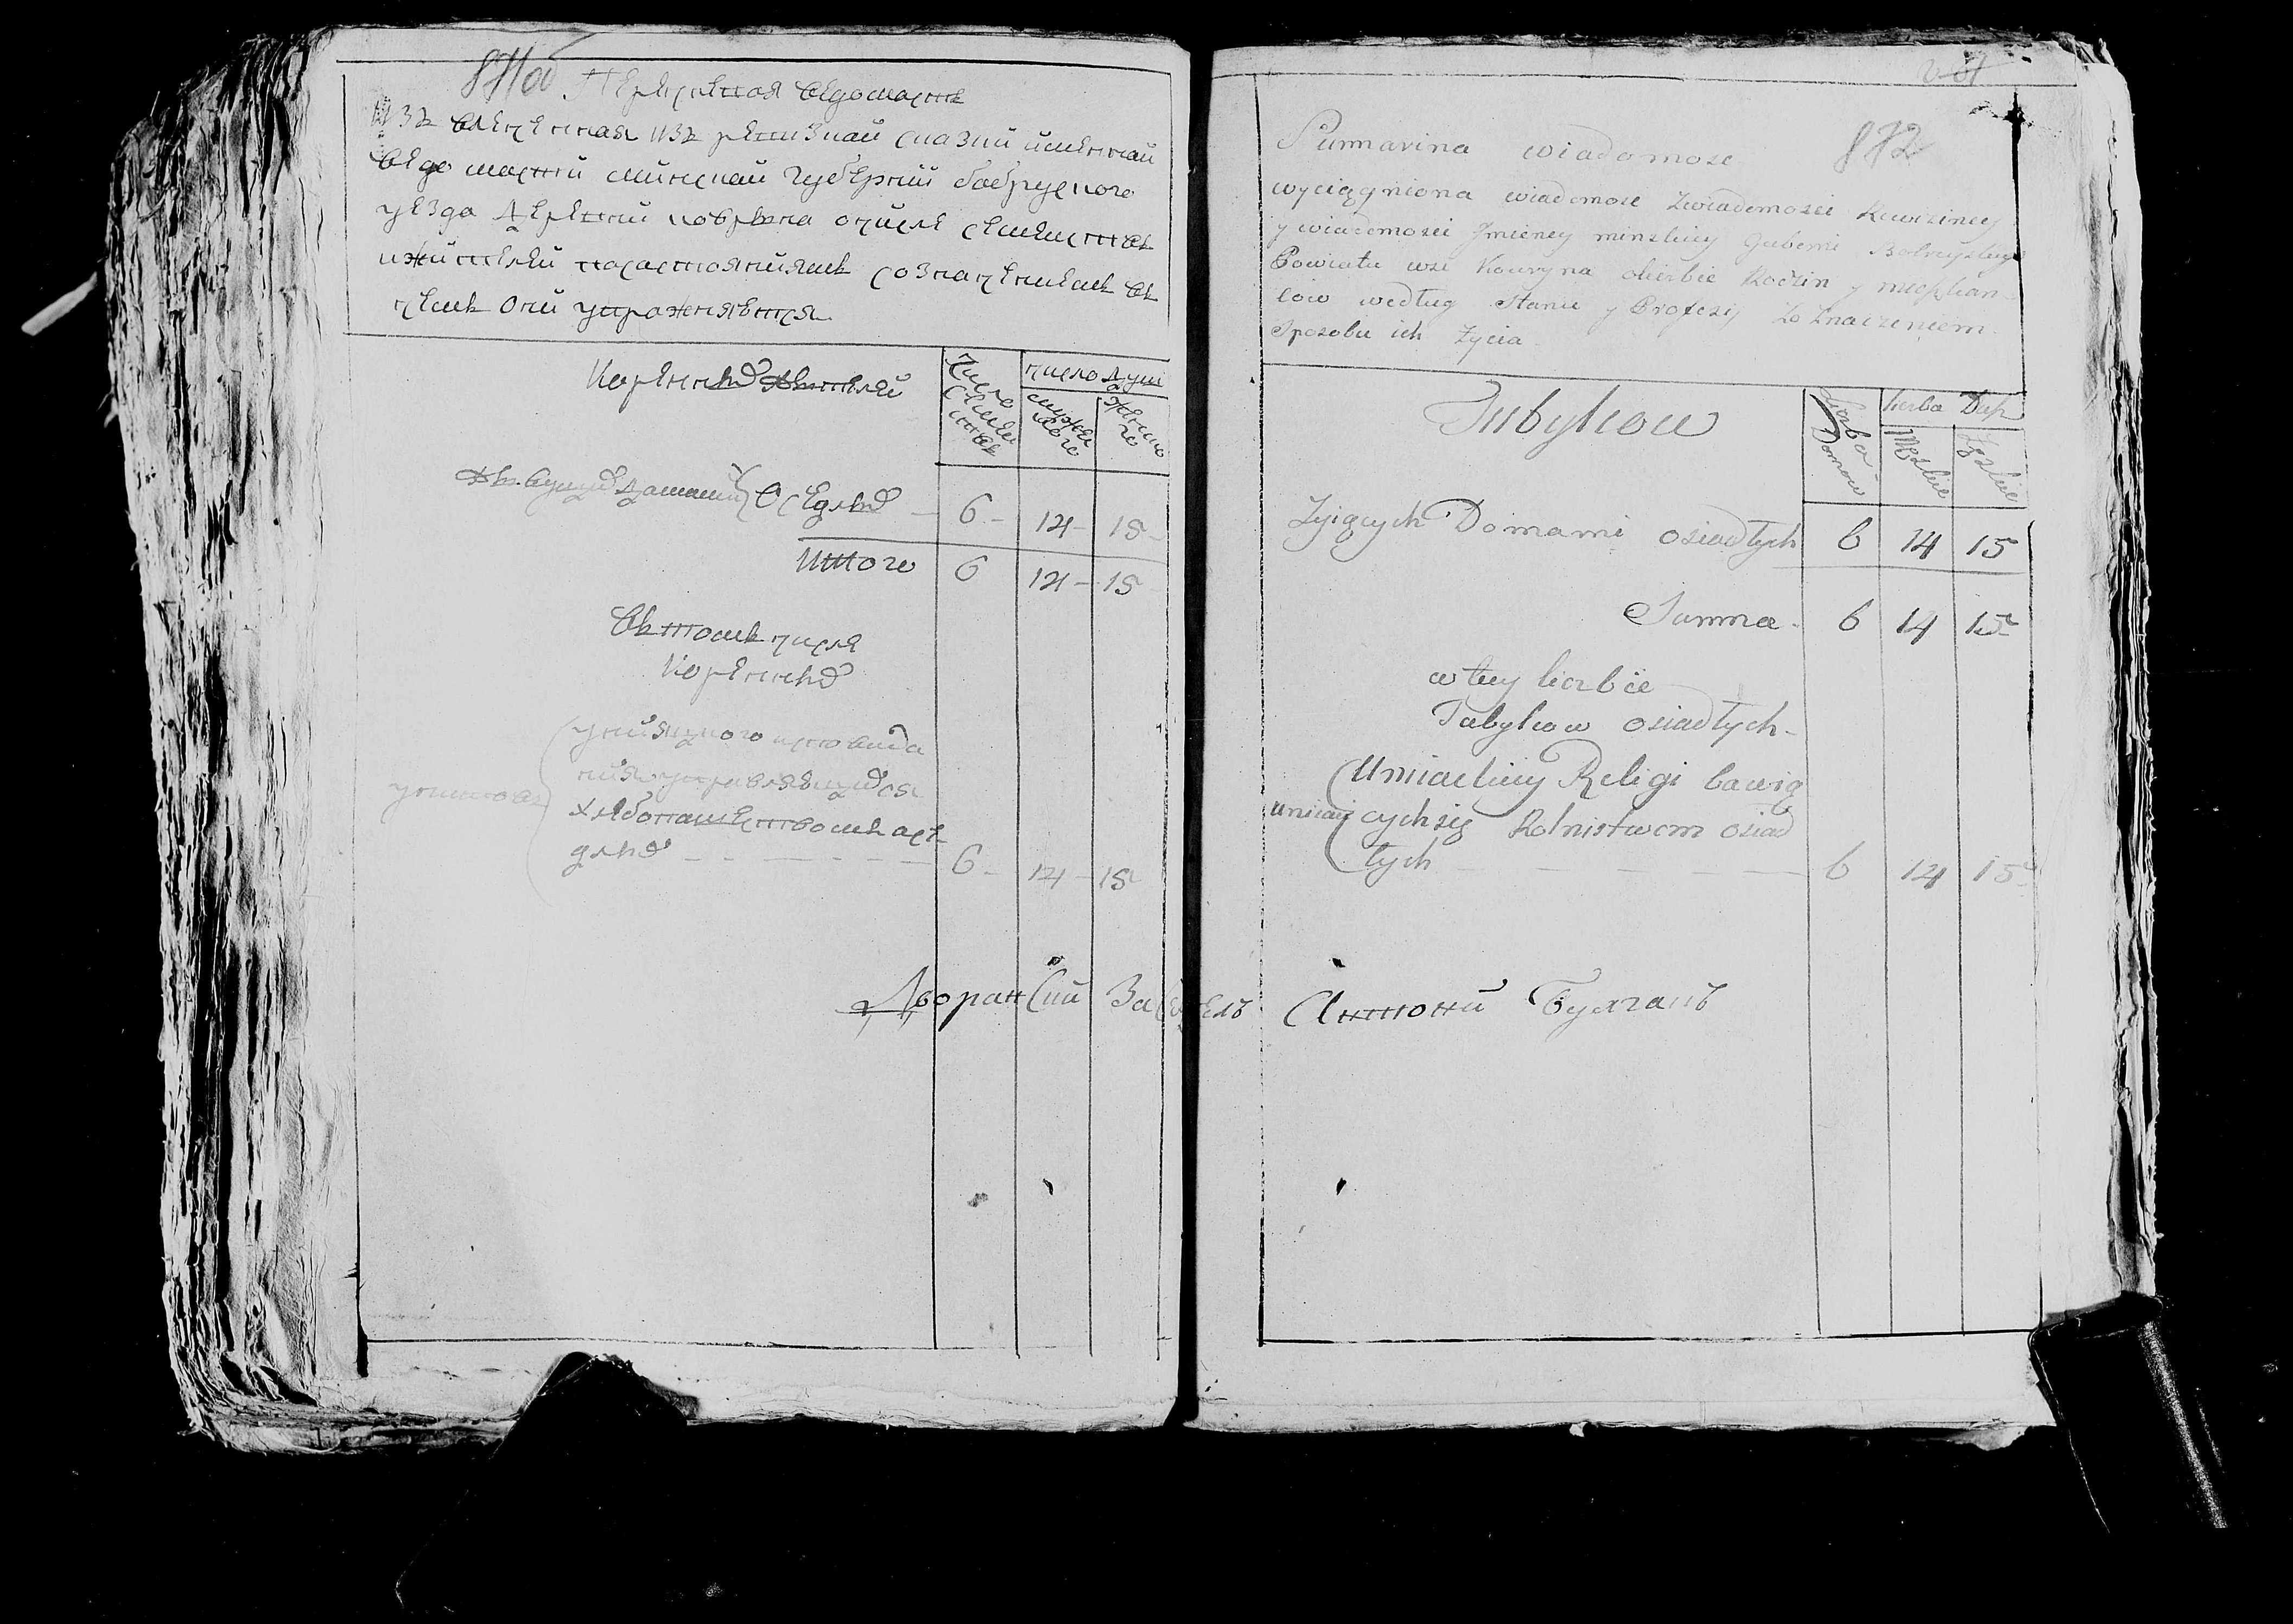 871об
Перечневая ведомость
извлеченная изъ ревизкай сказки именнай
ведомости минскай губерний бобруского
уезда деревни ковырина о числе семействъ
и жителей по состояниямъ со значениемъ въ
чемъ они упражняются
Коренныхъ жителей
Число семействъ
число душ
мужеска
женско
Живущихъ домами оседлыхъ 6 - 14 - 15 -
Итого 6 14 - 15
Въ томъ числе
Коренныхъ
униятовъ
униятского исповида
ния управляющихся
хлебопашествомъ осе
длыхъ 6 - 14 - 15
Дворанский Заседатель Антоний Булгакъ
872
Summarina wiadomosc
wyciągniona wiadomosc Zwiadomosci Rewizincy
y wiadomosci Jmieney minskiey Gubernii Bobruyskiego
Powiatu wsi Kowryna oliczbie Rodzin y mieszkan-
cow według Stanu y Profesij Zo Znaczeniem
Sposobu ich Zycia
Tubylcow
Liczba Domow
liczba Dusz
Męzkie
Zęzkie
Zyiących Domami osiadłych 6 14 15
Summa - 6 14 15
w tey liczbie
Tubylcow osiadłych -
uniaci
Uniackiey Religi bawią
cychsię Rolnistwem osiad
łych 6 14 15